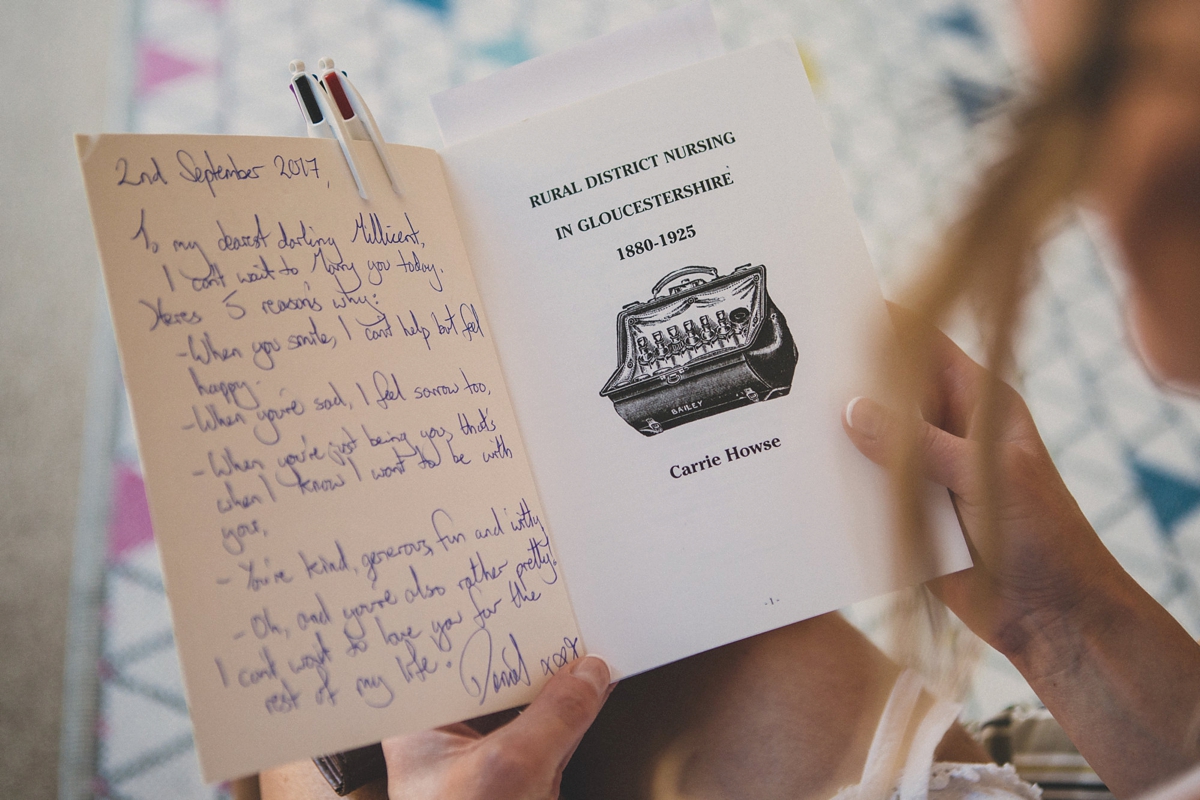 2nd September 2017,
To my dearest darling Millicent,
I can't wait to Marry you today.
Heres 5 reason's why:
-When you smile, I can't help but feel
happy.
-When you're sad, I feel sorrow too,
-When you're just being you, that's
when I know I want to be with
you,
- You're kind, generous, fun and witty
- Oh, and you're also rather pretty!
I can't wait to love you for the
rest of my life. Daniel xxx
RURAL DISTRICT NURSING
IN GLOUCESTERSHIRE
1880-1925
BAILEY
Carrie Howse
-1-